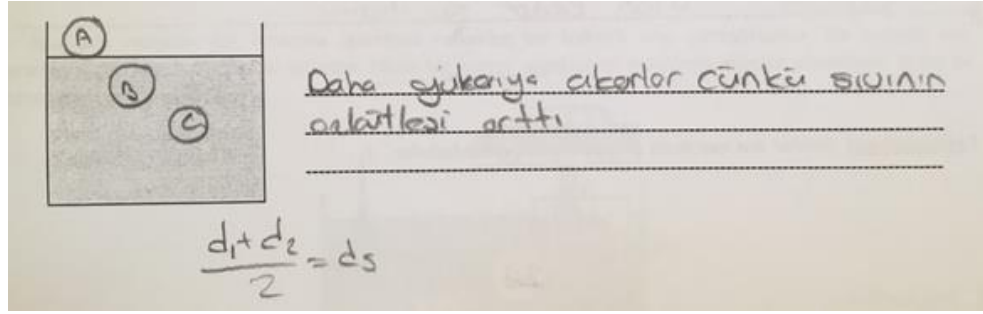 A
B
C
Daha yukarıya çıkarlar çünkü sıvının
özkütlesi arttı
d₁+d₂
2
=ds